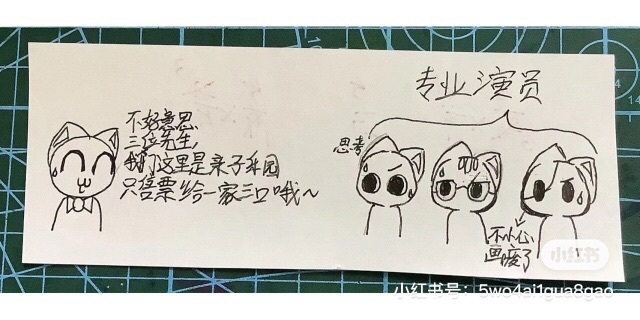 不好意思
三位先生,
我们这里是亲子乐园
只售票给一家三口哦~
专业演员
思考
不小心
画瘦了
小红书
小红书号: 5wo4ai1gua8gao